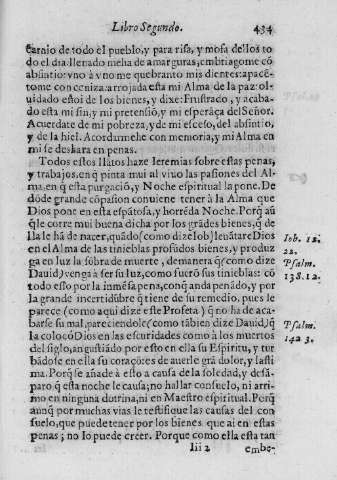 Libro Segundo. 434
carnio de todo el pueblo, y para risa, y mofa dellos to
do el dia: llenado meha de amarguras, embriagome cō
absintio: vno à vno me quebranto mis dientes: apacē-
tome con ceniza: arrojada esta mi Alma de la paz: ol-
uidado estoi de los bienes, y dixe: Frustrado, y acaba-
do esta mi fin, y mi pretensiō, y mi esperāça del Señor.
Acuerdate de mi pobreza, y de mi escesso, del absintio,
y de la hiel. Acordarme he con memoria, y mi Alma en
mi se deskara en penas.
Todos estos llātos haze Ieremias sobre estas penas,
y trabajos, en q̄ pinta mui al viuo las pasiones del Al-
ma, en q̄ esta purgaciō, y Noche espiritual la pone. De
dōde grande cōpasion conuiene tener à la Alma que
Dios pone en esta espātosa, y horrēda Noche. Porq̄ aū
q̄ le corre mui buena dicha por los grādes bienes, q̄ de
lla le hā de nacer, quādo (como dize Iob) leuātare Dios
en el Alma de las tinieblas profūdos bienes, y produz
ga en luz la sōbra de muerte, demanera q̄ (como dize
Dauid) venga à ser su luz, como fuerō sus tinieblas: cō
todo esso por la inmēsa pena, con q̄ anda penādo, y por
la grande incertidūbre q̄ tiene de su remedio, pues le
parece (como aqui dize este Profeta) q̄ no ha de aca-
barse su mal, pareciendole (como tābien dize Dauid) q̄
la colocò Dios en las escuridades como à los muertos
del siglo, angustiādo por esto en ella su Espiritu, y tur
bādose en ella su coraçō: es de auerle grā dolor, y lasti
ma. Porq̄ se añade à esto a causa de la soledad, y desā-
paro q̄ esta noche le causa; no hallar consuelo, ni arri-
mo en ninguna dotrina, ni en Maestro espiritual. Porq̄
aunq̄ por muchas vias le testifique las causas del con
suelo, que puede tener por los bienes que ai en estas
penas; no lo puede creer. Porque como ella esta tan
Iii 2 embe-
Iob. 12.
22.
Psalm.
138. 12.
Psalm.
142 3.